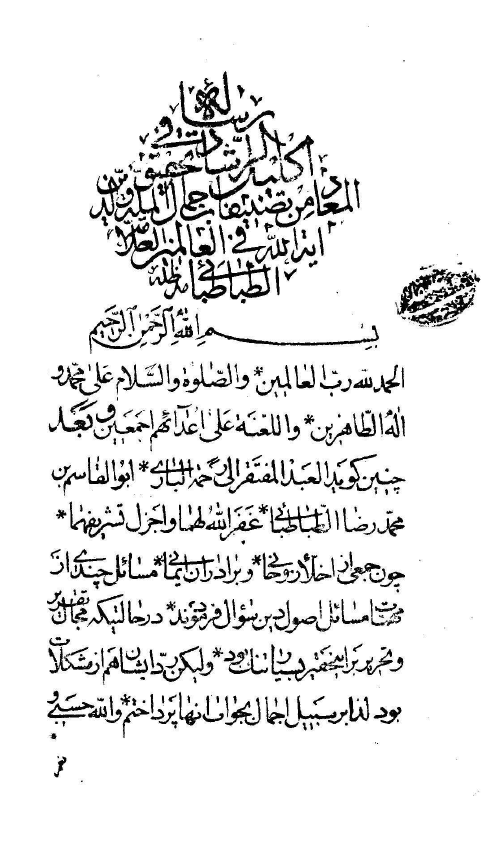 رسالهٔ
اکلیل الرشاد فی تحقیق
المعاد من تصنیفات جمال الملة والدین
ایة الله فی العالمین العلامة
الطباطبائی مد ظله
بسم الله الرحمن الرحیم
الحمد لله رب العالمین * والصلوة والسلام علی محمد و
اله الطاهرین * واللعنة علی اعدائهم اجمعین و بعد
چنین کوید العبد المفتقر الی رحمة الباری * ابوالقاسم بن
محمد رضا الطباطبائی * غفر الله لهما واجزل تشریفهما *
چون جمعی از اخلاء روحانی * و برادران ایمانی * مسائل چندی از
مهمات مسائل اصول دین سؤال فرمودند * درحالتیکه مجال تقریر
و تحریر برای حقیر بسیار تنک بود * ولیکن رد ایشان هم از مشکلات
بود لذا بر سبیل اجمال بجواب انها پرداختم * والله حسبی و